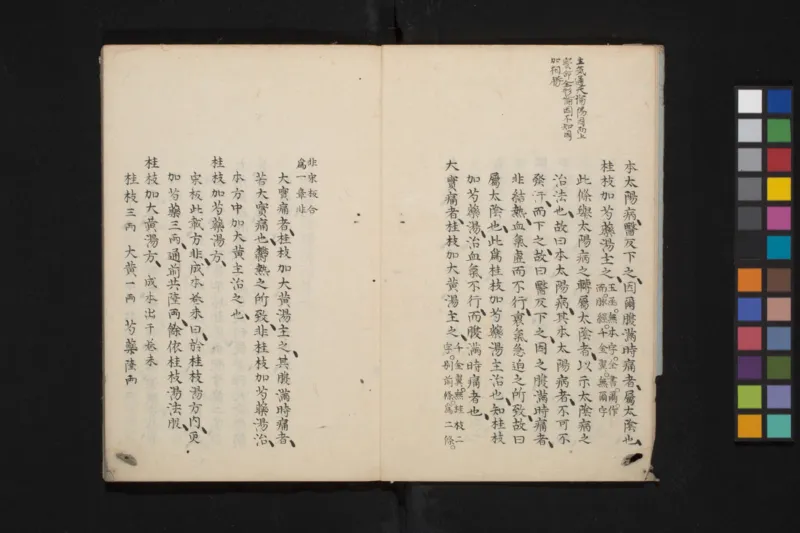 本太陽病醫反下之因爾腹滿時痛者屬太陰也
桂枝加芍藥湯主之
玉函無本字全書爾作
而脈經千金翼無爾字
此條擧太陽病之轉屬太陰者以示太陰病之
治法也故曰本太陽病其本太陽病者不可不
發汗而下之故曰醫反下之因之腹滿時痛者
非結熱血氣虛而不行實氣急迫之所致故曰
屬太陰也此爲桂枝加芍藥湯主治也知桂枝
加芍藥湯治血氣不行而腹滿時痛者也
大實痛者桂枝加大黃湯主之
千金翼無桂枝二
字別前條爲二條
非宋板合
爲一章非
大實痛者桂枝加大黃湯主之其腹滿時痛者
若大實痛也鬱熱之所致非桂枝加芍藥湯治
本方中加大黃主治之也
桂枝加芍藥湯方
宋板此載方非成本卷末曰於桂枝湯方內更
加芍藥三兩通前共陸兩餘依桂枝湯法服
桂枝加大黃湯方 成本出于卷末
桂枝三兩 大黃一兩 芍藥陸兩